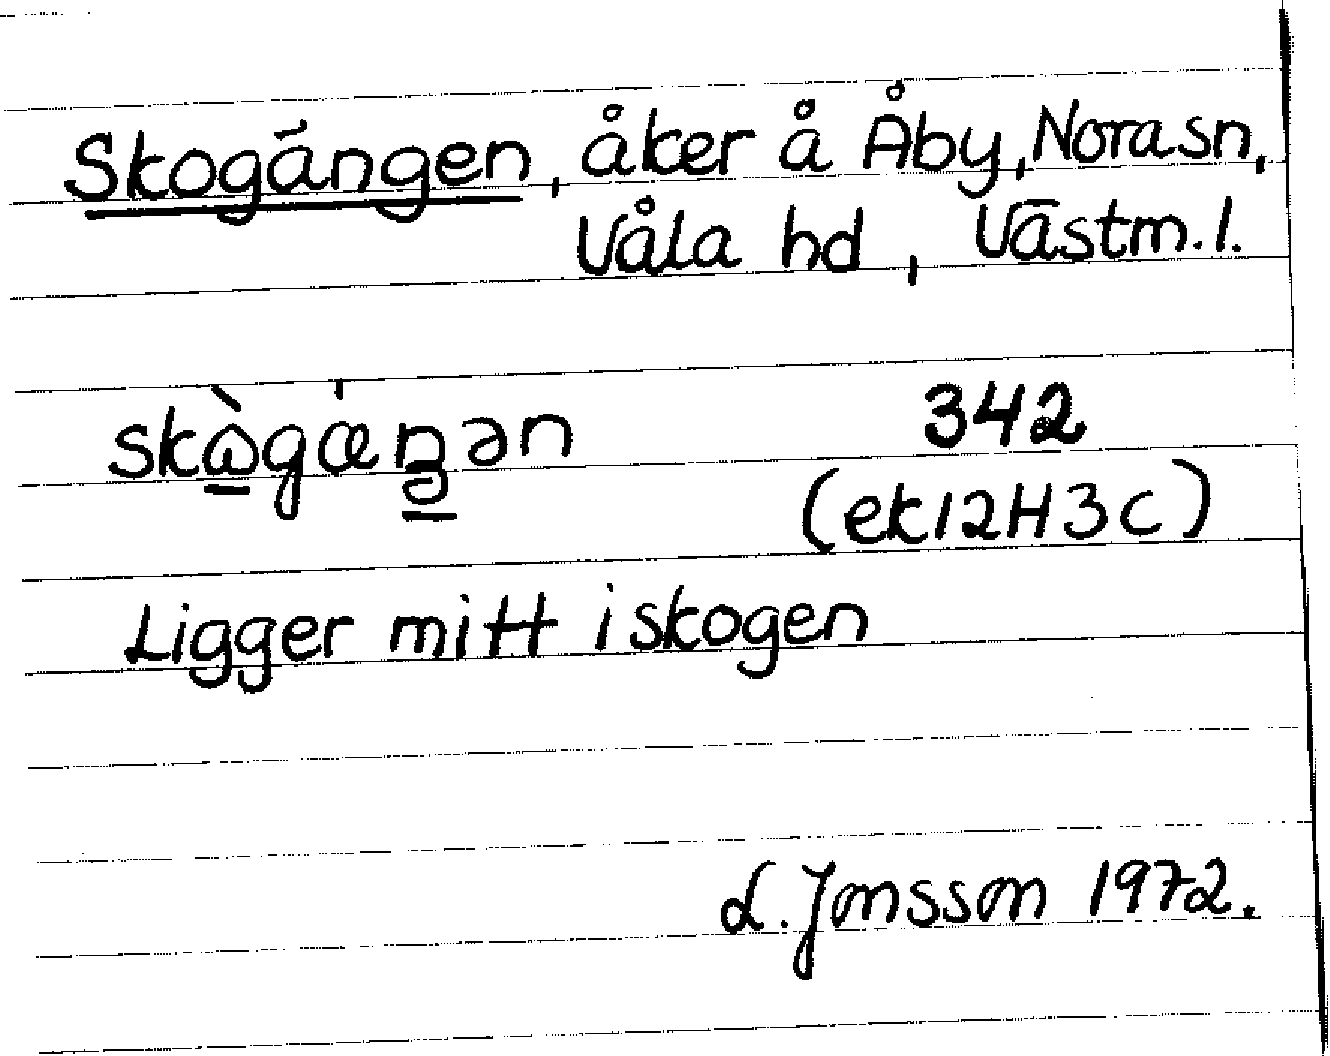 Skogängen, åker å Åby, Nora sn,
Våla hd, Västm. l.
342
(ek 12H3c)
Ligger mitt i skogen
L. Jonsson 1972.